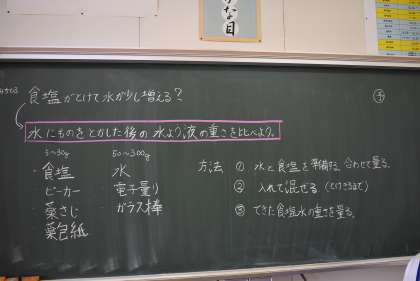 な目
食塩がとけて水が少し増える?
予
水にものをとかした後の水よう液の重さを比べよう。
5~30g 50~300g
・食塩 ・水
・ビーカー ・電子量り
・薬さじ ・ガラス棒
・薬包紙
方法 ① 水と食塩を準備する。合わせて量る。
② 入れて混ぜる(とけきるまで)
③ できた食塩水の重さを量る。